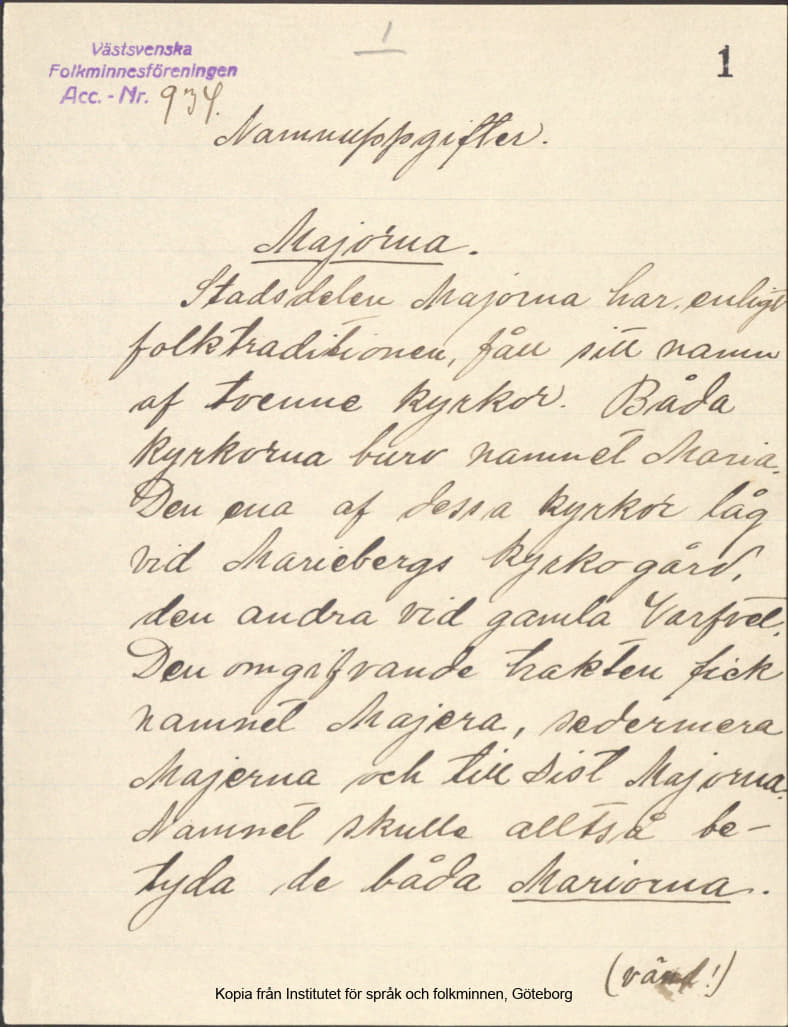 Västsvenska
Folkminnesföreningen
Acc. - Nr. 934.
1
1
Namnuppgifter.
Majorna.
Stadsdelen Majorna har, enligt
folktraditionen, fått sitt namn
af tvenne kyrkor. Båda
kyrkorna buro namnet Maria.
Den ena af dessa kyrkor låg
vid Mariebergs kyrkogård,
den andra vid gamla Varfvet.
Den omgifvande trakten fick
namnet Majera, sedermera
Majerna och till sist Majorna.
Namnet skulle alltså be-
tyda de båda Mariorna.
(vänd!)
Kopia från Institutet för språk och folkminnen, Göteborg